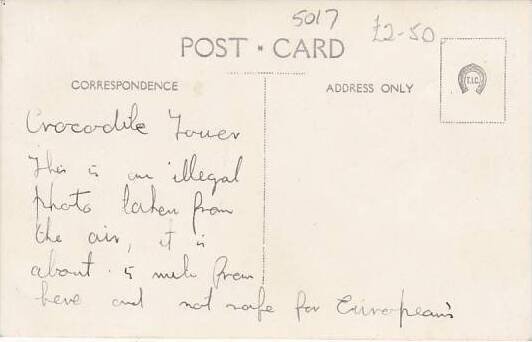 5017 £2-50
POST • CARD
CORRESPONDENCE
ADDRESS ONLY
T.I.C.
Crocodile Tower
This is an illegal
photo taken from
the air, it is
about 5 mile from
here and not safe for European's